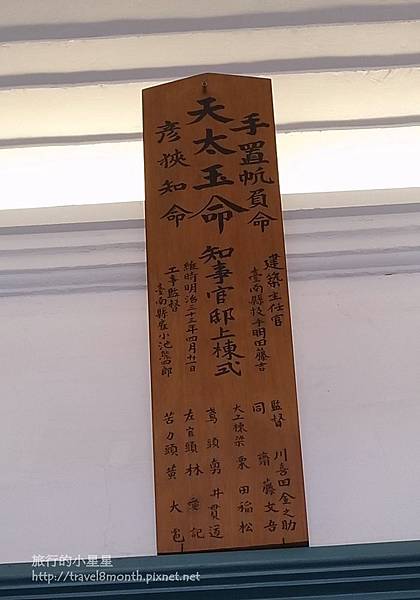 手置帆負命
天太玉命
彥狹知命
知事官邸上棟式
建築主任官
臺南縣技手明田藤吉
維時明治三十三年四月廿一日
工事監督
臺南縣雇小池熊四郎
監督 川喜田金之助
同 齋藤文吾
大工棟梁 栗田福松
鳶頭 勇井貫道
左官頭 林愛記
苦力頭 黃大邑
旅行的小星星
http://travel8month.pixnet.net